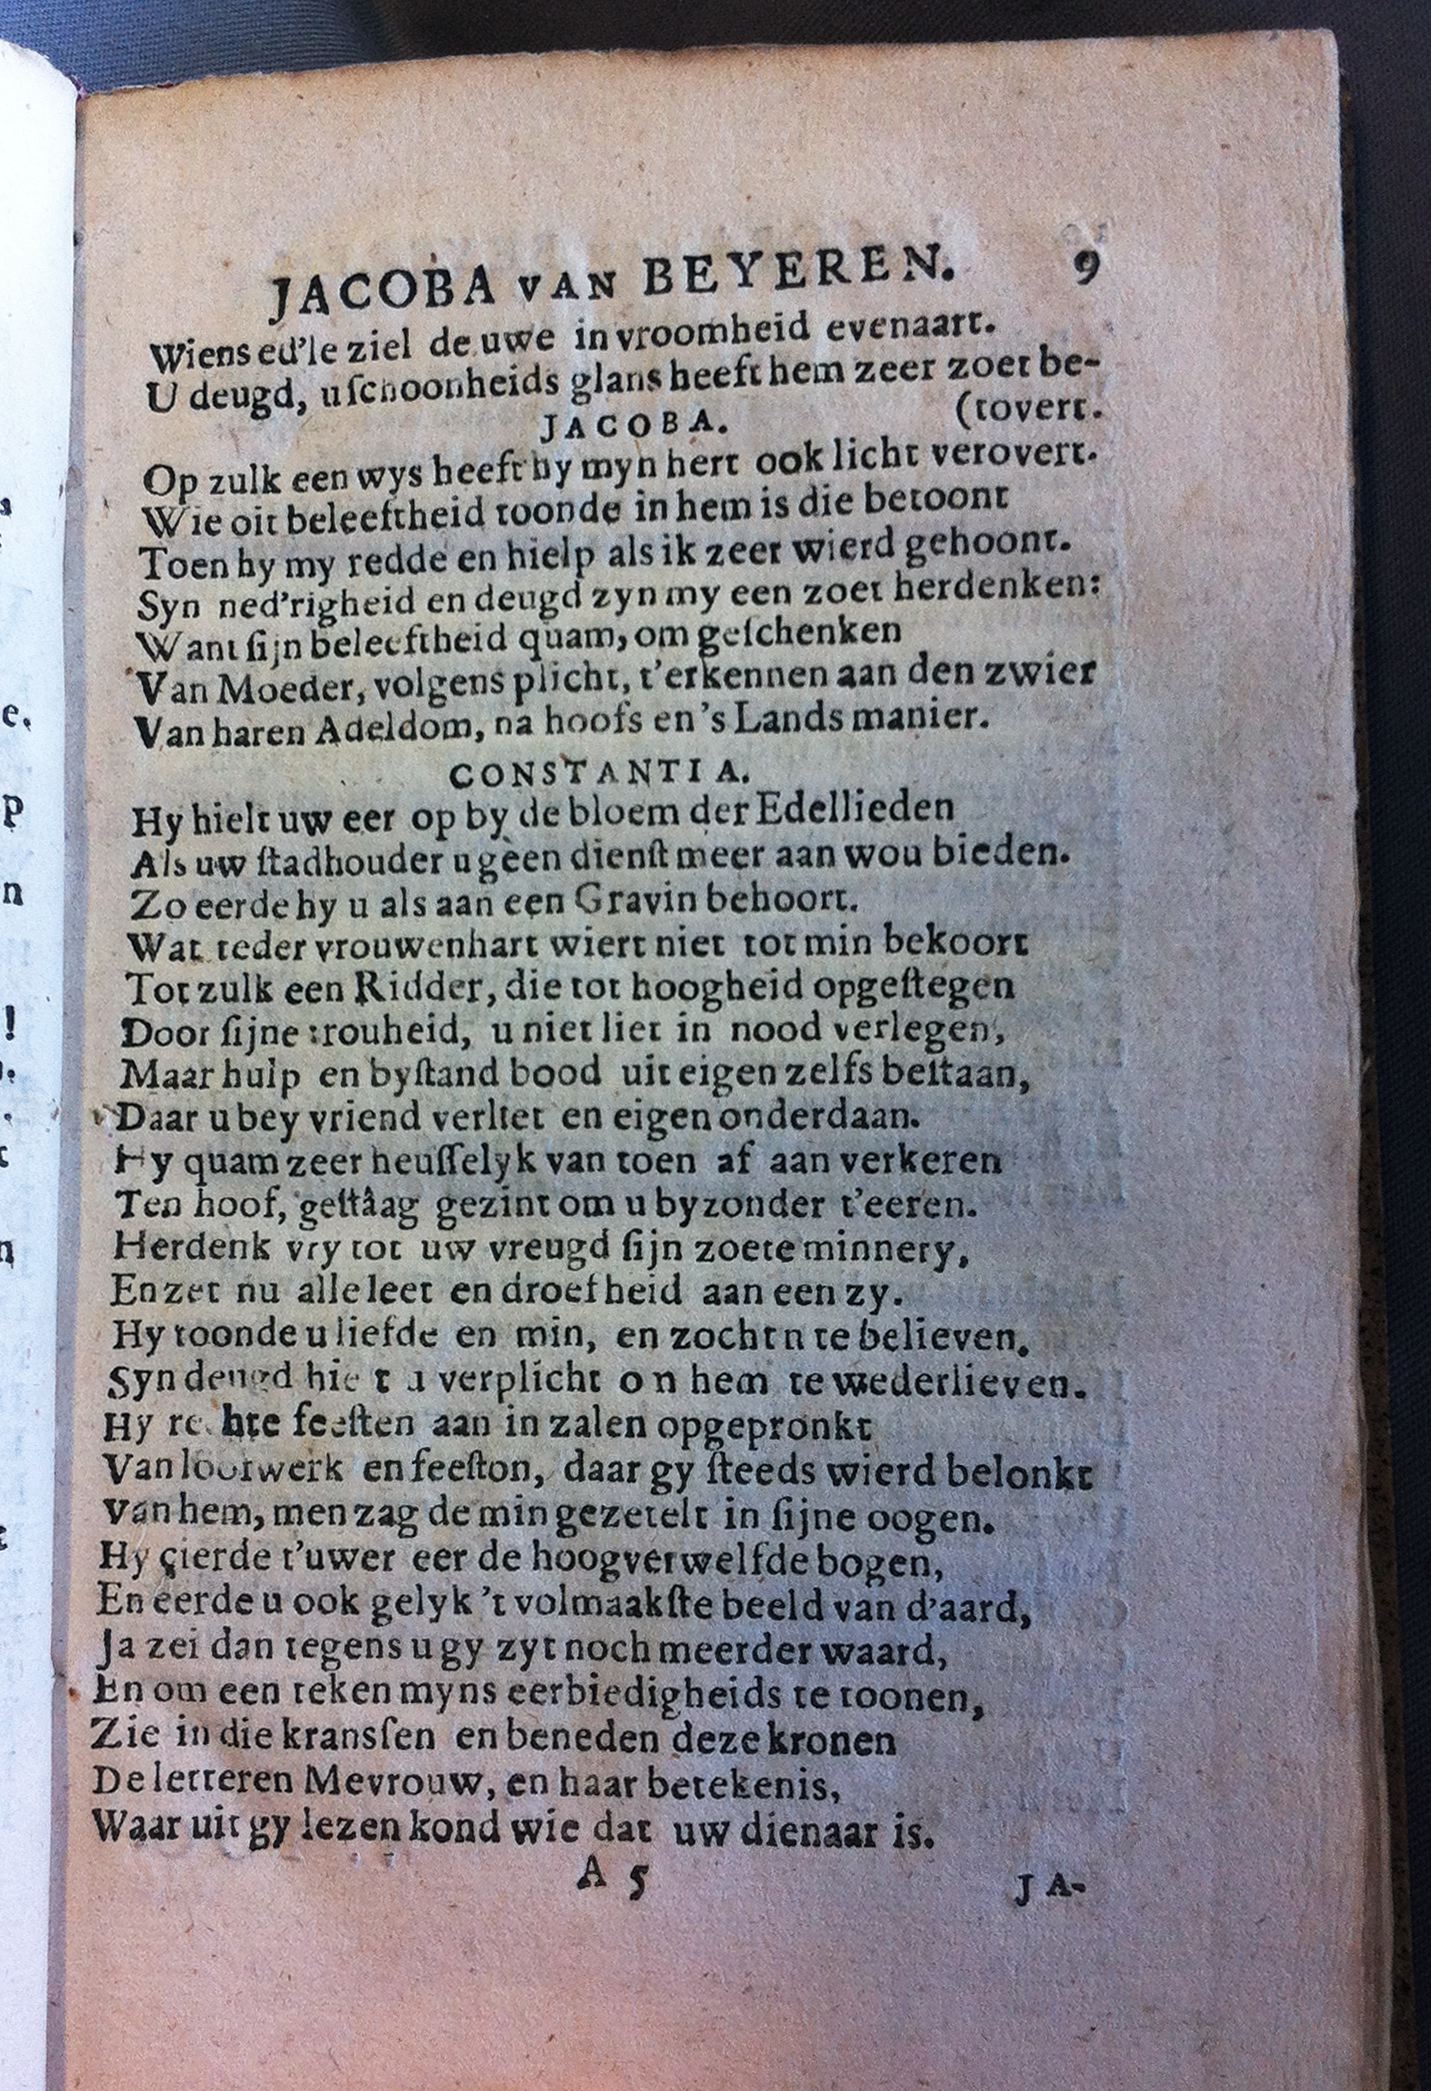 JACOBA VAN BEYEREN. 9
Wiens ed'le ziel de uwe in vroomheid evenaart.
U deugd, u ſchoonheids glans heeft hem zeer zoet be-
(tovert.
JACOBA.
Op zulk een wys heeft hy myn hert ook licht verovert.
Wie oit beleeftheid toonde in hem is die betoont
Toen hy my redde en hielp als ik zeer wierd gehoont.
Syn ned'righeid en deugd zyn my een zoet herdenken:
Want ſijn beleeftheid quam, om geſchenken
Van Moeder, volgens plicht, t'erkennen aan den zwier
Van haren Adeldom, na hoofs en 's Lands manier.
CONSTANTIA.
Hy hielt uw eer op by de bloem der Edellieden
Als uw ſtadhouder u geen dienſt meer aan wou bieden.
Zo eerde hy u als aan een Gravin behoort.
Wat teder vrouwenhart wiert niet tot min bekoort
Tot zulk een Ridder, die tot hoogheid opgeſtegen
Door ſijne trouheid, u niet liet in nood verlegen,
Maar hulp en byſtand bood uit eigen zelfs beſtaan,
Daar u bey vriend verliet en eigen onderdaan.
Hy quam zeer heuſſelyk van toen af aan verkeren
Ten hoof, geſtâag gezint om u byzonder t'eeren.
Herdenk vry tot uw vreugd ſijn zoete minnery,
En zet nu alle leet en droefheid aan een zy.
Hy toonde u liefde en min, en zocht n te believen.
Syn deugd hiet u verplicht om hem te wederlieven.
Hy rechte feeſten aan in zalen opgepronkt
Van loofwerk en feeſton, daar gy ſteeds wierd belonkt
Van hem, men zag de min gezetelt in ſijne oogen.
Hy çierde t'uwer eer de hoogverwelfde bogen,
En eerde u ook gelyk 't volmaakſte beeld van d'aard,
Ja zei dan tegens u gy zyt noch meerder waard,
En om een teken myns eerbiedigheids te toonen,
Zie in die kransſen en beneden deze kronen
De letteren Mevrouw, en haar betekenis,
Waar uit gy lezen kond wie dat uw dienaar is.
A 5 JA-